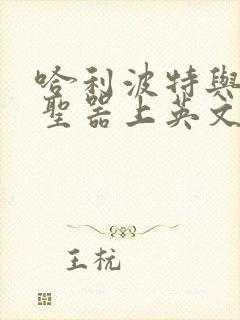 哈利波特與
聖器上英文
王杬